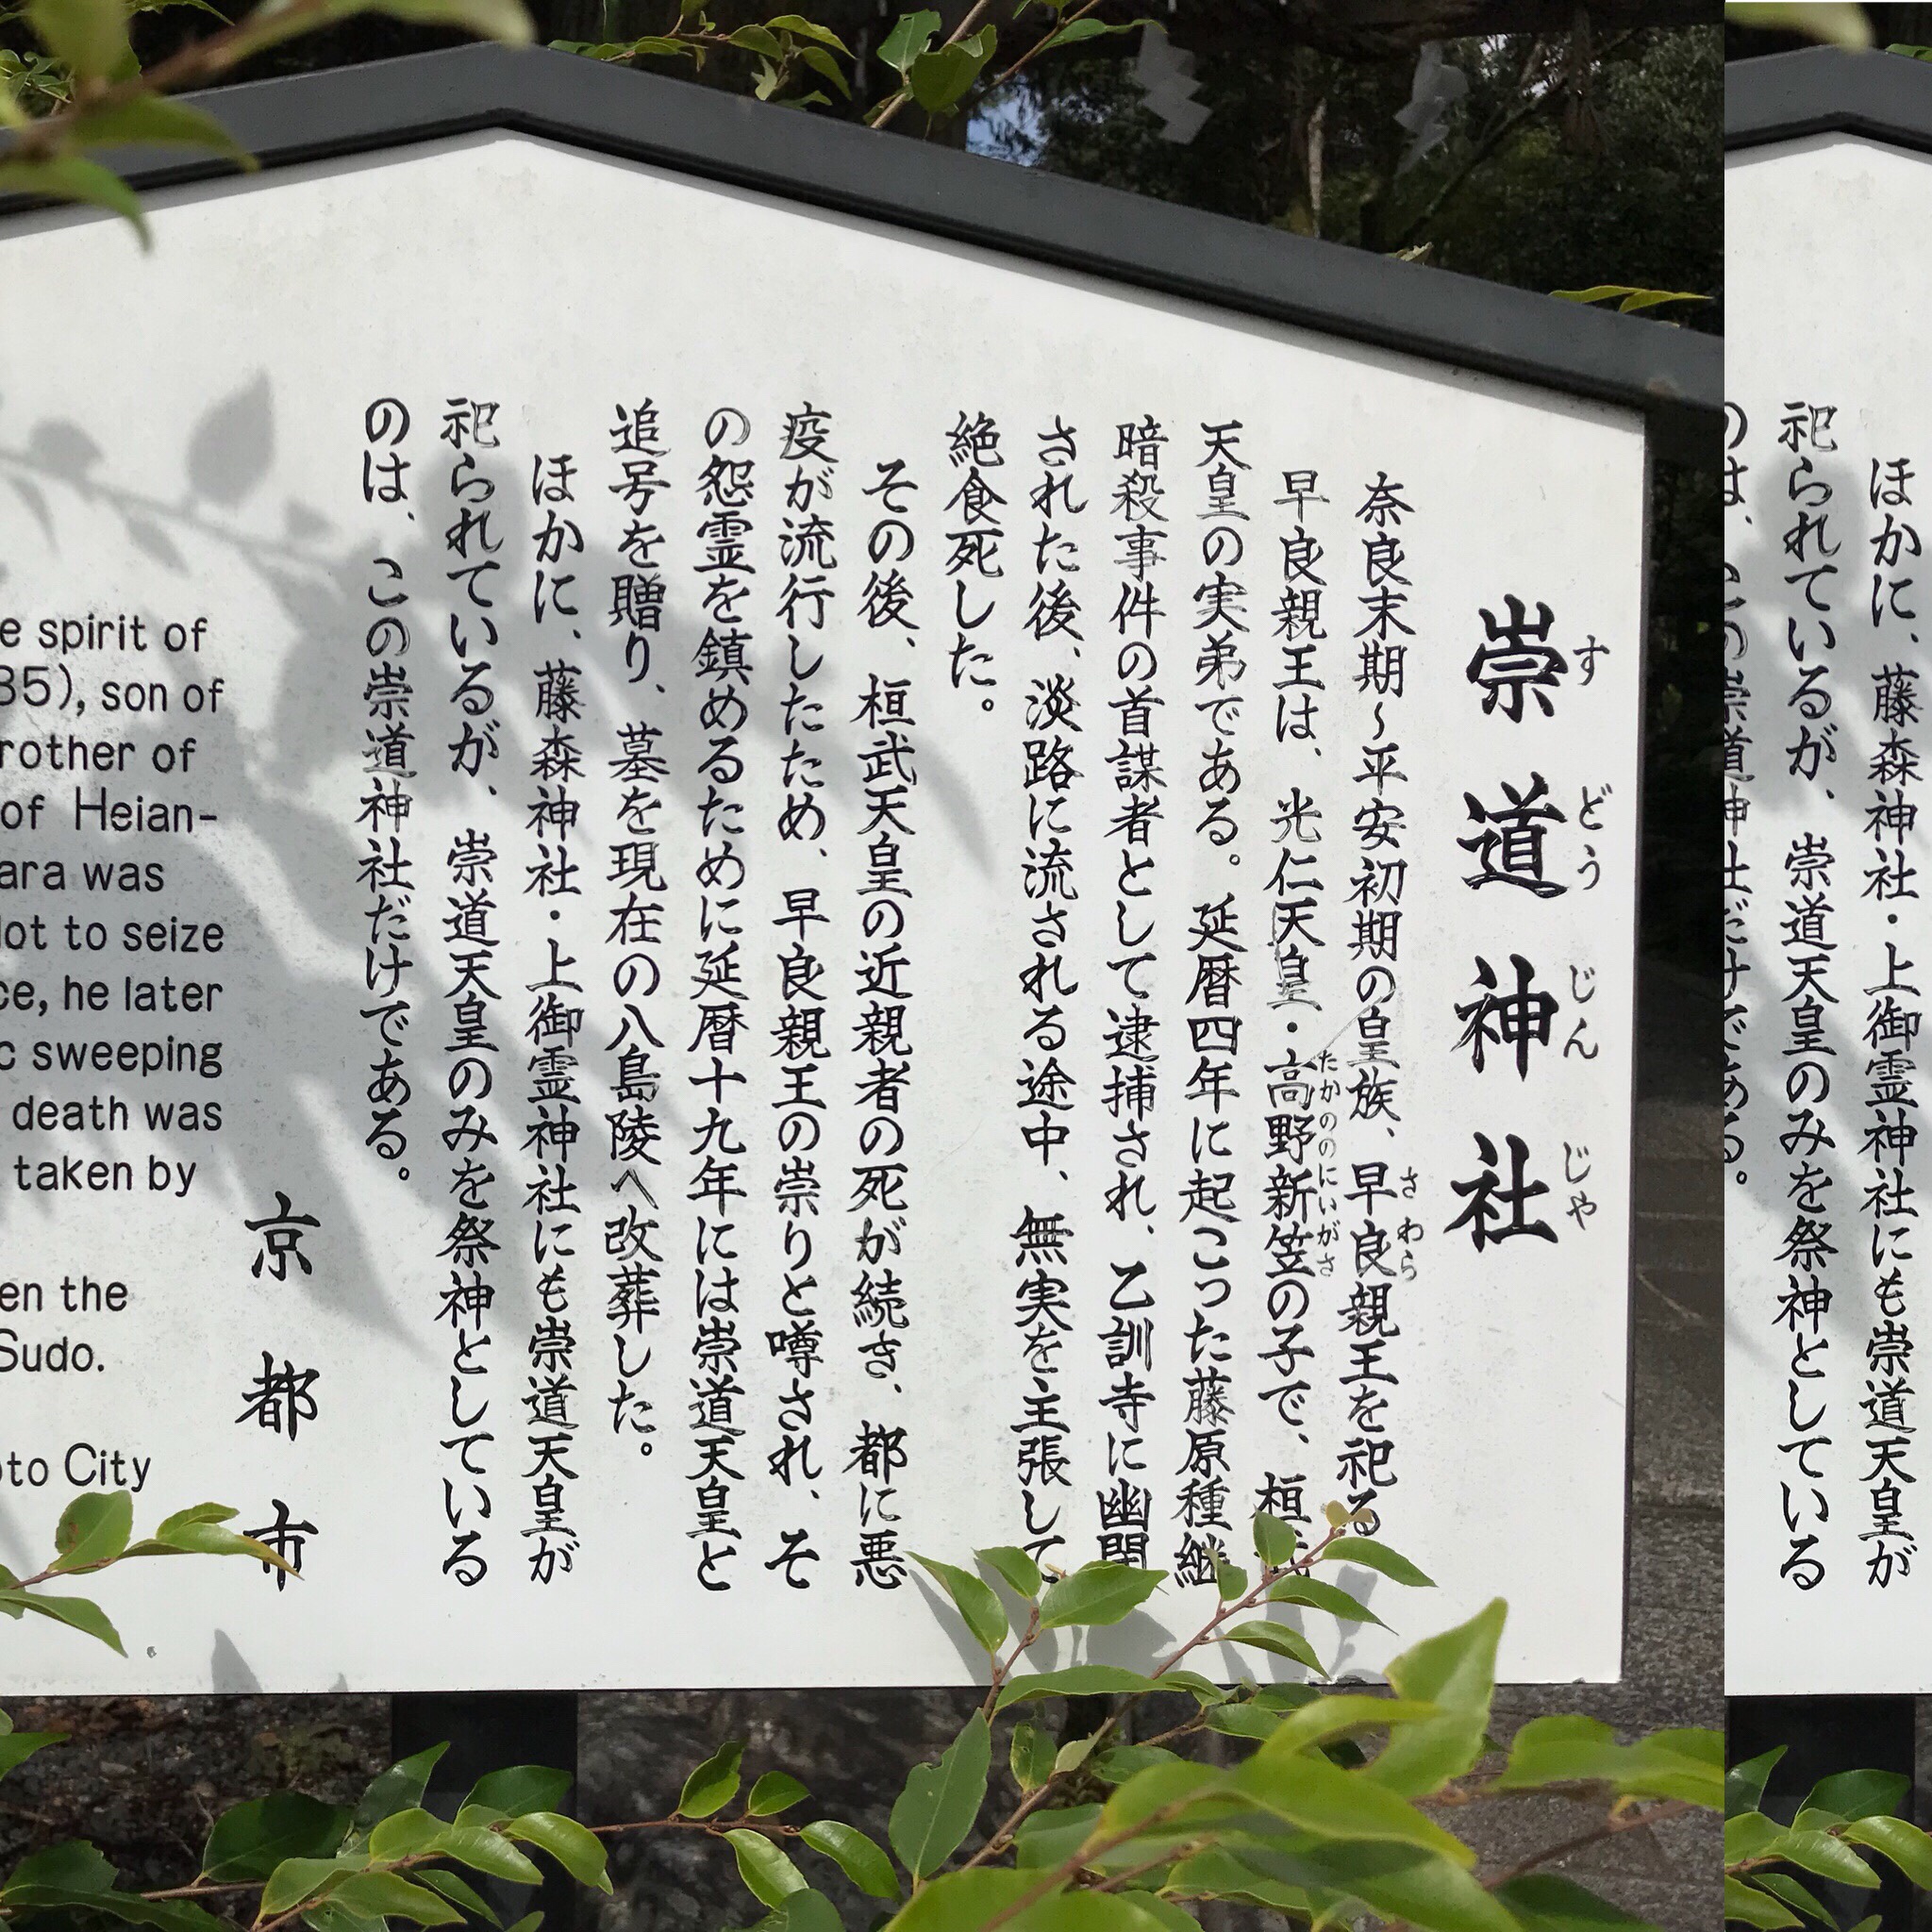 崇道神社
すどうじんじゃ
奈良末期～平安初期の皇族、早良親王を祀る
さわら
早良親王は、光仁天皇・高野新笠の子で、桓武
たかののにいがさ
天皇の実弟である。延暦四年に起こった藤原種継
暗殺事件の首謀者として逮捕され、乙訓寺に幽閉
された後、淡路に流される途中、無実を主張して
絶食死した。
その後、桓武天皇の近親者の死が続き、都に悪
疫が流行したため、早良親王の崇りと噂され、そ
の怨霊を鎮めるために延暦十九年には崇道天皇と
追号を贈り、墓を現在の八島陵へ改葬した。
ほかに、藤森神社・上御霊神社にも崇道天皇が
祀られているが、崇道天皇のみを祭神としている
のは、この崇道神社だけである。
京都市
e spirit of
85), son of
rother of
of Heian-
ara was
lot to seize
ce, he later
c sweeping
death was
taken by
en the
Sudo.
oto City
ほかに、藤森神社・上御霊神社にも崇道天皇が
祀られているが、崇道天皇のみを祭神としている